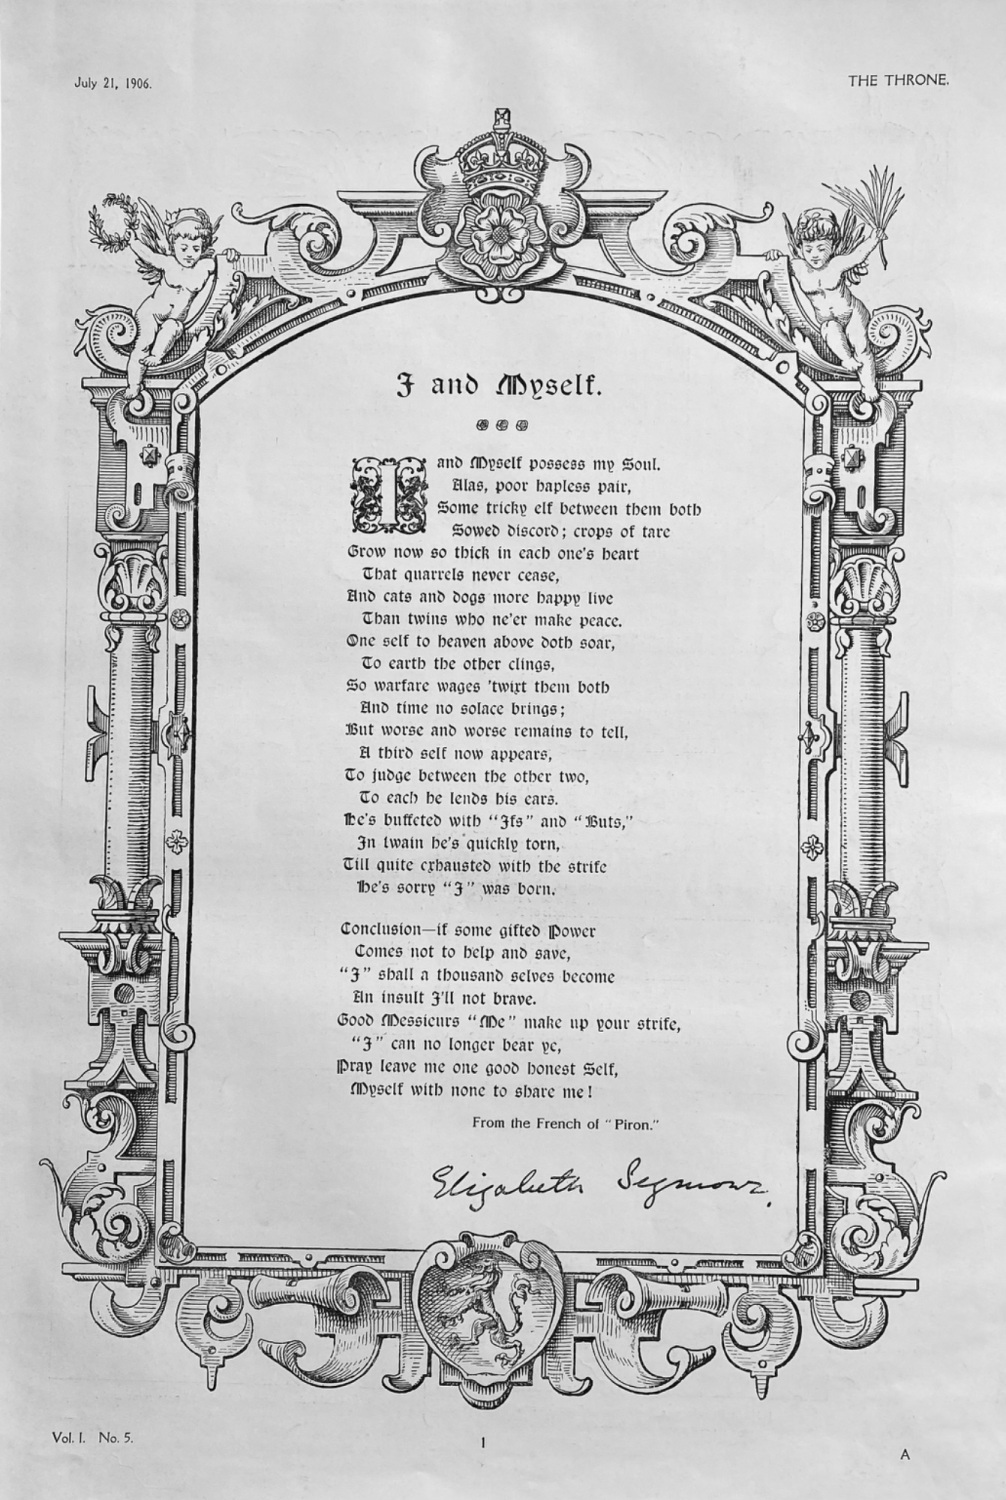 July 21, 1906.
THE THRONE.
I and Myself.
I and Myself possess my Soul.
Alas, poor hapless pair,
Some tricky elf between them both
Sowed discord; crops of tare
Grow now so thick in each one's heart
That quarrels never cease,
And cats and dogs more happy live
Than twins who ne'er make peace.
One self to heaven above doth soar,
To earth the other clings,
So warfare wages 'twixt them both
And time no solace brings;
But worse and worse remains to tell,
A third self now appears,
To judge between the other two,
To each he lends his ears.
He's buffeted with "Ifs" and "Buts,"
In twain he's quickly torn,
Till quite exhausted with the strife
He's sorry "I" was born.
Conclusion—if some gifted Power
Comes not to help and save,
"I" shall a thousand selves become
An insult I'll not brave.
Good Messieurs "Me" make up your strife,
"I" can no longer bear ye,
Pray leave me one good honest Self,
Myself with none to share me!
From the French of "Piron."
Elizabeth Seymour.
Vol. I. No. 5.
1
A